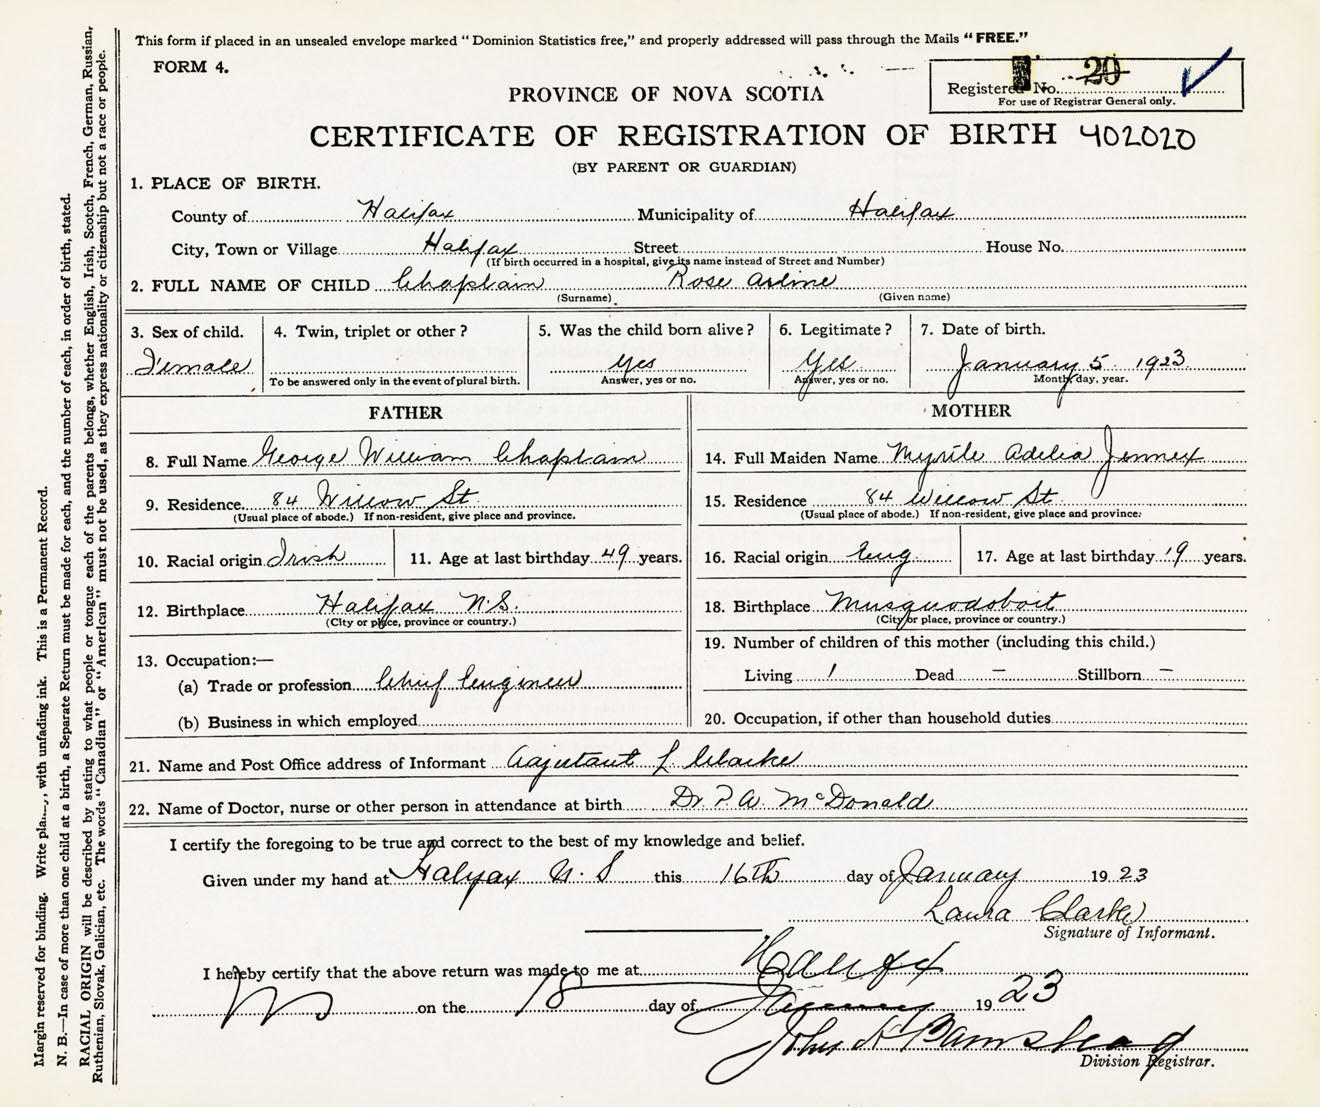 This form if placed in an unsealed envelope marked “Dominion Statistics free,” and properly addressed will pass through the Mails “FREE.”
FORM 4.
Registered No. 20
For use of Registrar General only.
PROVINCE OF NOVA SCOTIA
CERTIFICATE OF REGISTRATION OF BIRTH 402020
(BY PARENT OR GUARDIAN)
1. PLACE OF BIRTH.
County of Halifax Municipality of Halifax
City, Town or Village Halifax Street House No.
(If birth occurred in a hospital, give its name instead of Street and Number)
2. FULL NAME OF CHILD Chaplain Rose Arline
(Surname) (Given name)
3. Sex of child. 4. Twin, triplet or other? 5. Was the child born alive? 6. Legitimate? 7. Date of birth.
Female Yes Yes January 5 1923
To be answered only in the event of plural birth. Answer, yes or no. Answer, yes or no. Month, day, year.
FATHER
8. Full Name George William Chaplain
9. Residence 84 Willow St
(Usual place of abode.) If non-resident, give place and province.
10. Racial origin Irish 11. Age at last birthday 49 years.
12. Birthplace Halifax N.S.
(City or place, province or country.)
13. Occupation:—
(a) Trade or profession Chief Engineer
(b) Business in which employed
MOTHER
14. Full Maiden Name Myrtle Adelia Jennex
15. Residence 84 Willow St
(Usual place of abode.) If non-resident, give place and province:
16. Racial origin Eng 17. Age at last birthday 19 years.
18. Birthplace Musquodoboit
(City or place, province or country.)
19. Number of children of this mother (including this child.)
Living 1 Dead — Stillborn —
20. Occupation, if other than household duties
21. Name and Post Office address of Informant Adjutant L Clarke
22. Name of Doctor, nurse or other person in attendance at birth Dr. P. A. McDonald
I certify the foregoing to be true and correct to the best of my knowledge and belief.
Given under my hand at Halifax N.S this 16th day of January 1923
Laura Clarke
Signature of Informant.
I hereby certify that the above return was made to me at Halifax
NS on the 18 day of January 1923
John H Barnstead
Division Registrar.
Margin reserved for binding. Write , with unfading ink. This is a Permanent Record.
N. B.—In case of more than one child at a birth, a Separate Return must be made for each, and the number of each, in order of birth, stated.
RACIAL ORIGIN will be described by stating to what people or tongue each of the parents belongs, whether English, Irish, Scotch, French, German, Russian,
Ruthenian, Slovak, Galician, etc. The words “Canadian” or “American” must not be used, as they express nationality or citizenship but not a race or people.